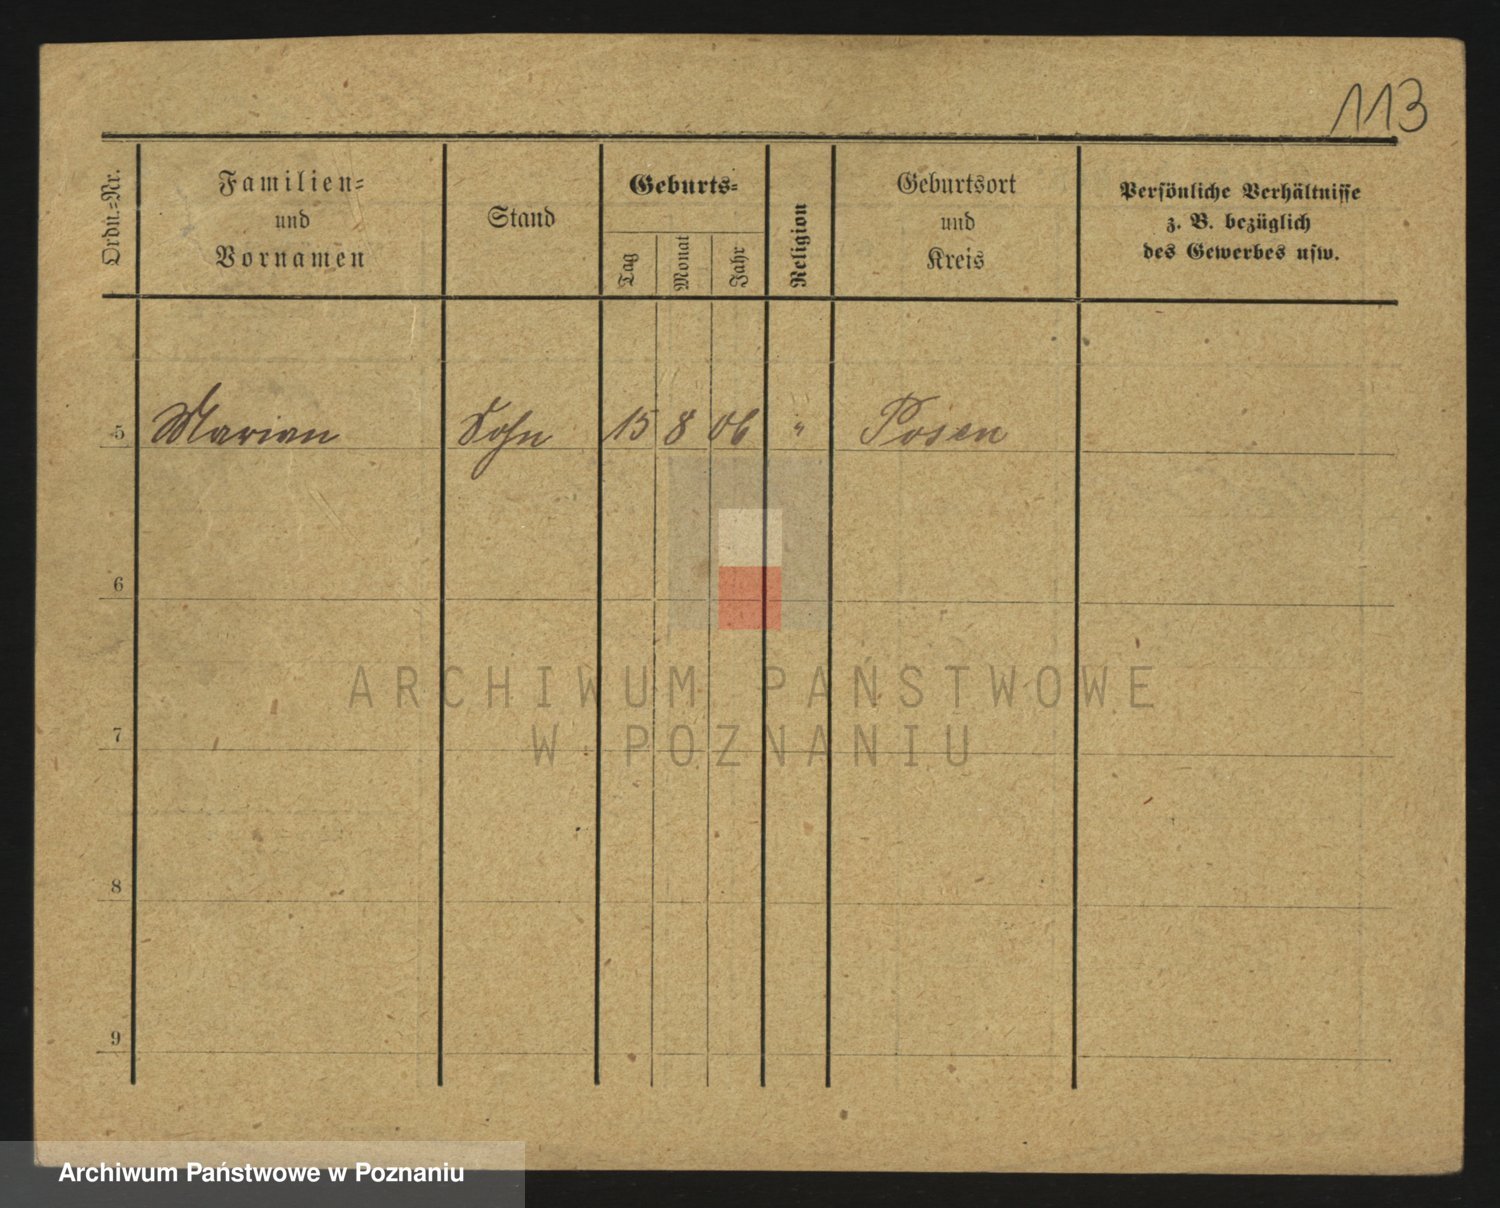 113
Ordn.-Nr.
Familien-
und
Vornamen
Stand
Geburts-
Tag
Monat
Jahr
Religion
Geburtsort
und
Kreis
Persönliche Verhältnisse
z. B. bezüglich
des Gewerbes usw.
5 Marian Sohn 15 8 06 " Posen
6
7
8
9
ARCHIWUM PAŃSTWOWE
W POZNANIU
Archiwum Państwowe w Poznaniu